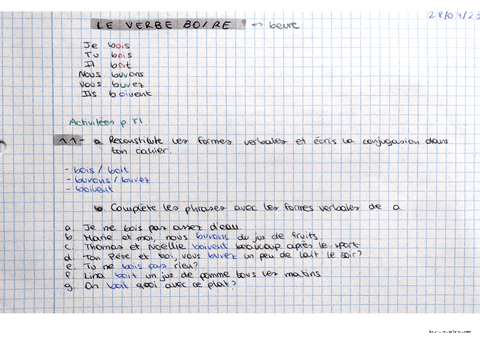 LE VERBE BOIRE → beure
28/04/23
Je bois
Tu bois
Il boit
Nous buvons
Vous buvez
Ils boivent
Activitées p.51
11- a Reconstitute les formes verbales et écris la conjugasion dans
ton cahier.
- bois / boit
- buvons / buvez
- boivent
b. Complète les phrases avec les formes verbales de a
a. Je ne bois pas assez d'eau
b. Marie et moi, nous buvons du jus de fruits
c. Thomas et Noëllie boivent beaucoup après le sport
d. Ton Père et toi, vous buvez un peu de lait le soir?
e. Tu ne bois pas rien?
f. Lina boit un jus de pomme tous les matins
g. On boit quoi avec ce plat?